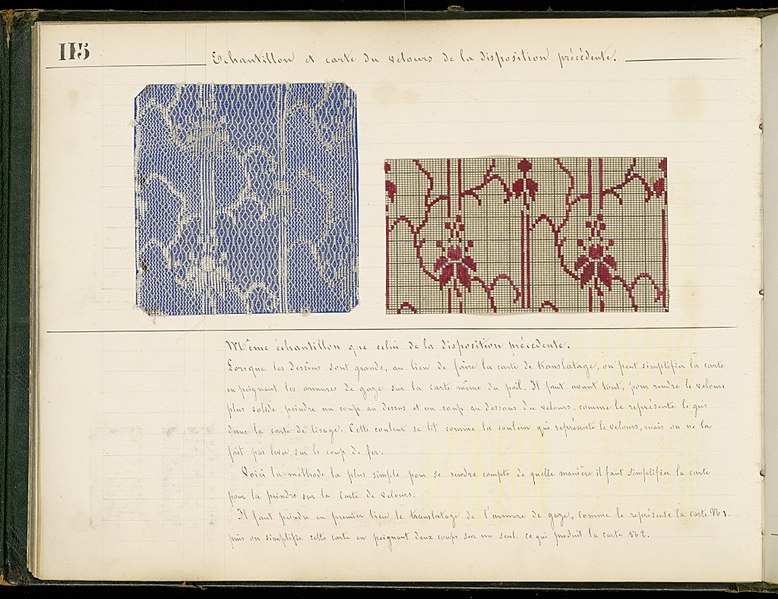 115
Echantillon et carte du velours de la disposition précédente.
Même échantillon que celui de la disposition précedente.
Lorsque les dessins sont grands, au lieu de faire la carte de translatage, on peut simplifier la carte
en peignant les armures de gaze sur la carte même du poil. Il faut avant tout, pour rendre le velours
plus solide peindre un coup au dessus et un coup au dessous du velours, comme le représente le gris
dans la carte de lisage. Cette couleur se lit comme la couleur qui représente le velours, mais on ne la
fait pas lever sur le coup de fer.
Voici la méthode la plus simple pour se rendre compte de quelle manière il faut simplifier la carte
pour la peindre sur la carte de velours.
Il faut peindre en premier lieu le translatage de l'armure de gaze, comme le représente la carte No 1.
puis on simplifie cette carte en peignant deux coups sur un seul ce qui produit la carte No 2.